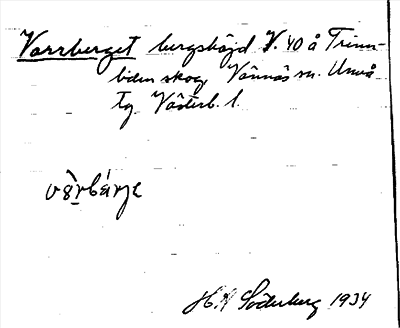 Varrberget bergshöjd V. 40 å Trinn-
liden skog, Vännäs sn. Umeå
tg Västerb. l.
H. Söderberg 1934